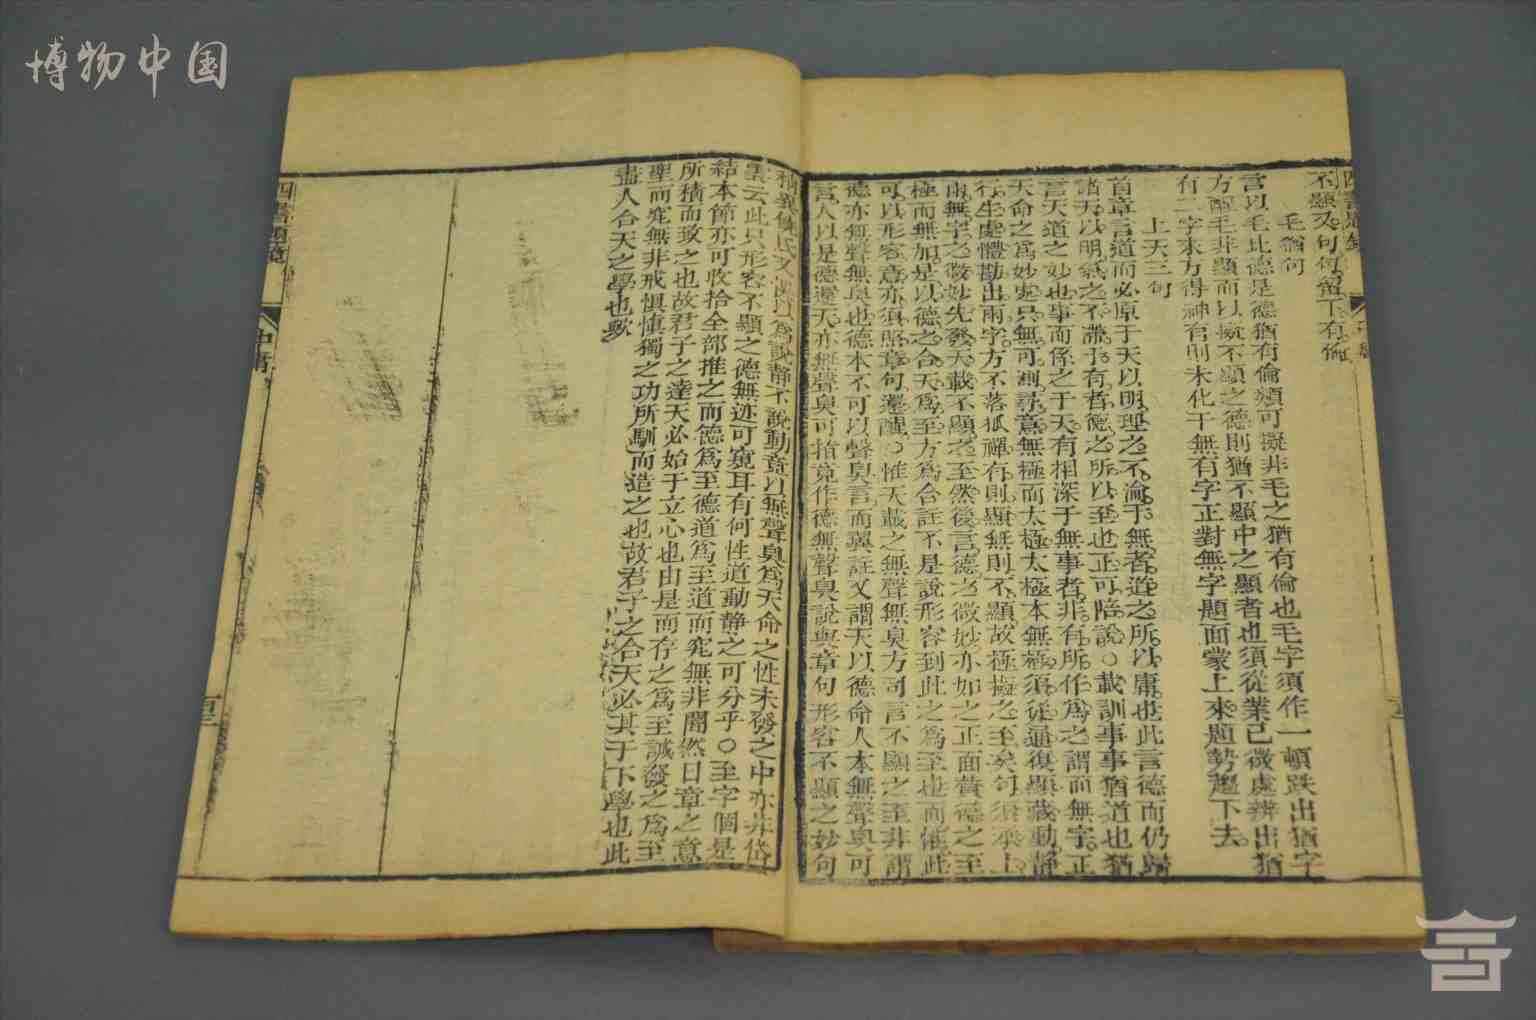 博物中国
不顯又句句留下有倫
毛猶句
言以毛比德是德猶有倫類可擬非毛之猶有倫也毛字須作一頓跌出猶字
方醒毛非顯而以擬不顯之德則猶不顯中之顯者也須從業已微處辨出猶
有二字來方得神有則未化于無有字正對無字題面蒙上來題勢趨下去
上天三句
首章言道而必原于天以明理之不淪于無者道之所以庸也此言德而仍歸
諸天以明氣之不滯于有者德之所以至也正可陪說○載訓事事猶道也猶
言天道之妙也事而係之于天有相深于無事者非有所作為之謂而無字正
天命之為妙處只無可測尋意無極而太極太極本無藏須從通復顯藏動靜
行生處體勘出兩字方不落狐禪有則顯無則不顯故極擬之至矣句須承上
兩無字之微妙先發天載不顯之至然後言德之微妙亦如之正面黃德之至
極而無加是以德之合天為至方為合註不是說形容到此之為至也而催此
可以形容意亦須照章句還醒○惟天載之無聲無臭方可言不顯之至非謂
德亦無聲無臭也德本不可以聲臭言而翼註又謂天以德命人本無聲臭可
言人以是德還天亦無聲臭可指竟作德無聲臭說與章句形容不顯之妙句
為說靜不說動竟以無聲臭為天命之性未發之中亦非岱
雲云此只形容不顯之德無迹可窺耳有何性道動靜之可分乎○至字個是
結本節亦可收拾全部推之而德為至德道為至道而究無非闇然日章之意
所積而致之也故君子之達天必始于立心也由是而存之為至誠發之為至
聖而究無非戒懼慎獨之功所馴而造之也故君子之合天必其于下學也此
盡人合天之學也歟
中庸